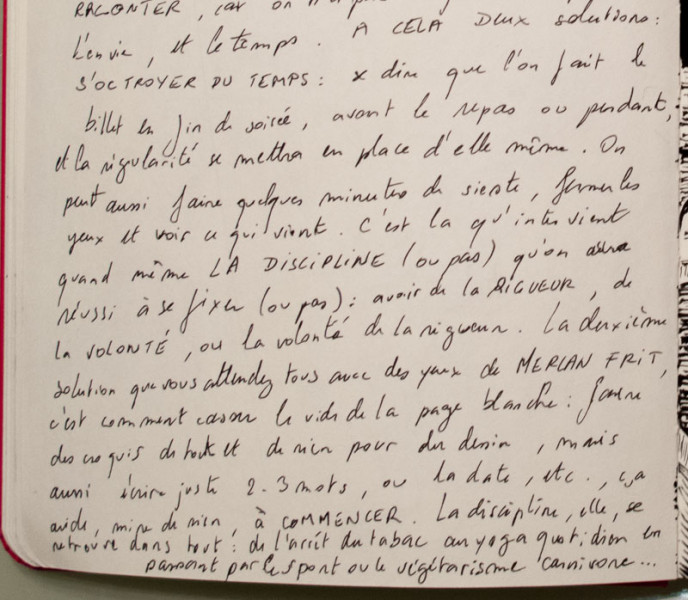 RACONTER, car on n'a
L'envie, et le temps. A CELA DEUX solutions:
S'OCTROYER DU TEMPS: x dire que l'on fait le
billet en fin de soirée, avant le repas ou pendant,
et la régularité se mettra en place d'elle même. On
peut aussi faire quelques minutes de sieste, fermer les
yeux et voir ce qui vient. C'est la qu'intervient
quand même LA DISCIPLINE (ou pas) qu'on aura
réussi à se fixer (ou pas): avoir de la RIGUEUR, de
la VOLONTÉ, ou la volonté de la rigueur. La deuxième
solution que vous attendez tous avec des yeux de MERLAN FRIT,
c'est comment casser le vide de la page blanche: faire
des croquis de tout et de rien pour du dessin, mais
aussi écrire juste 2-3 mots, ou la date, etc., ça
aide, mine de rien, à COMMENCER. La discipline, elle, se
retrouve dans tout: de l'arrêt du tabac au yoga quotidien en
passant par le sport ou le végétarisme carnivore...